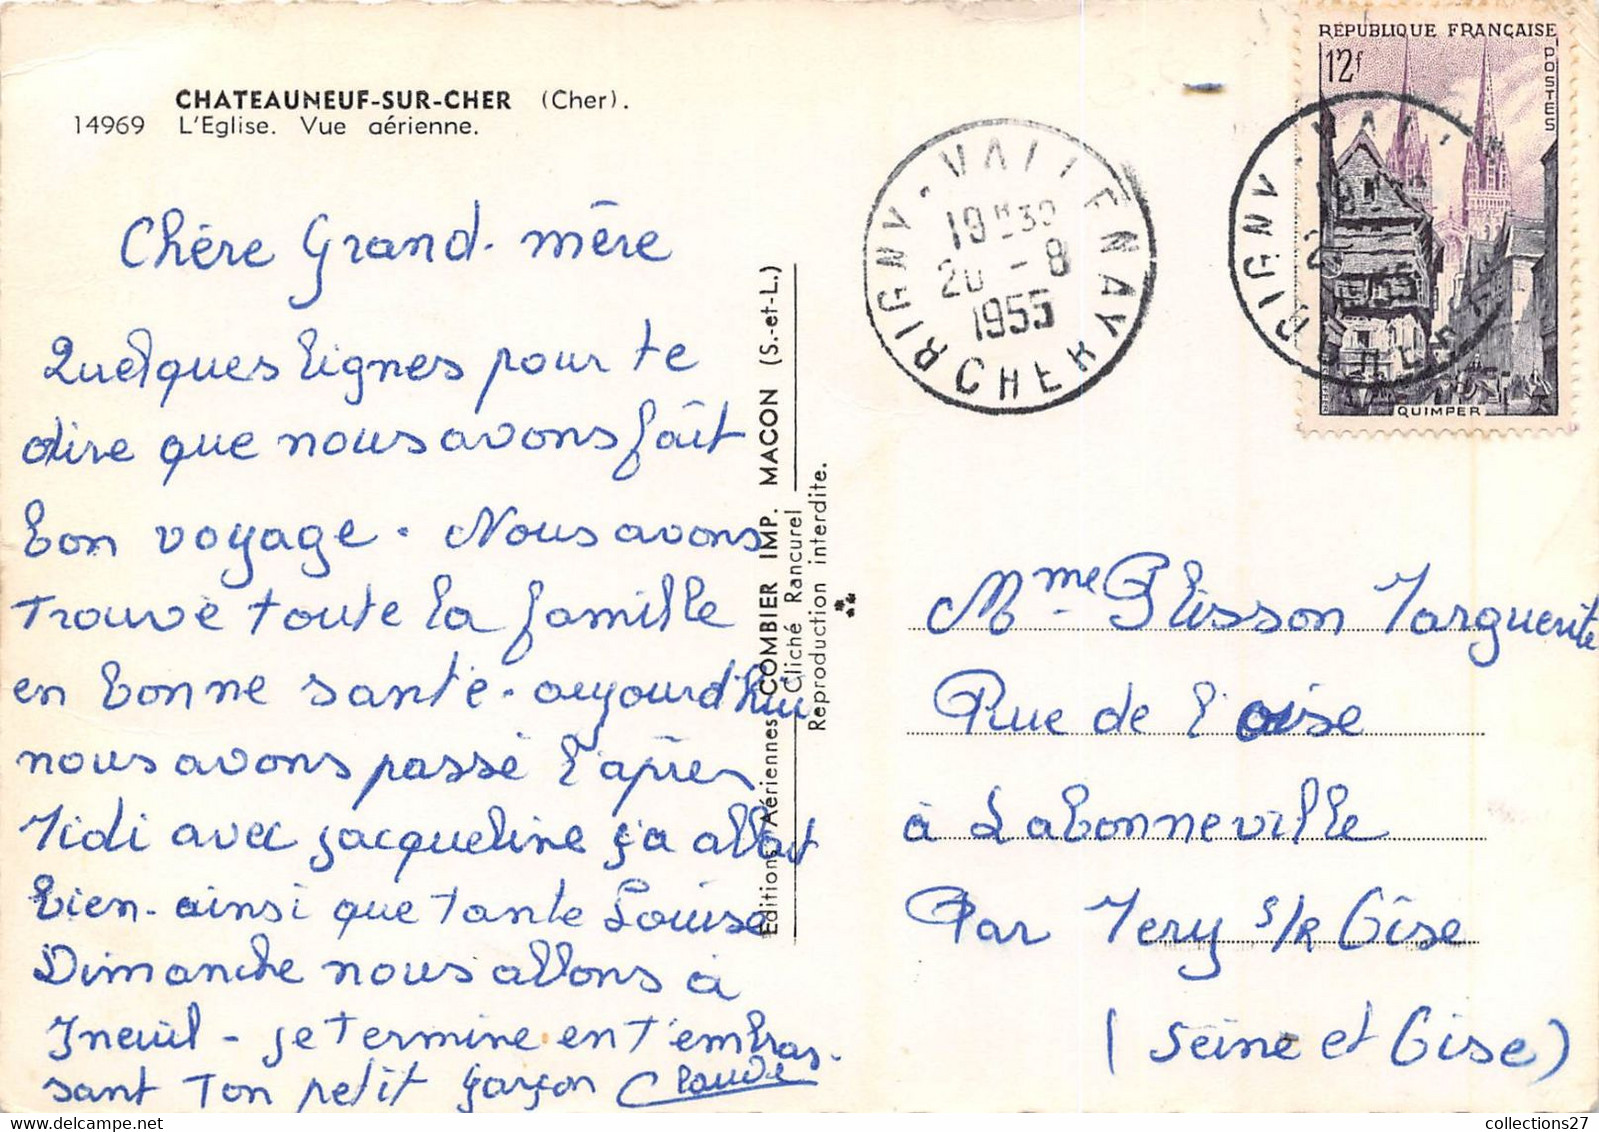 CHATEAUNEUF-SUR-CHER (Cher).
14969 L'Eglise. Vue aérienne.
Chère Grand-mère
Quelques lignes pour te
dire que nous avons fait
bon voyage. Nous avons
trouvé toute la famille
en bonne santé. aujourd'hui
nous avons passé l'après
Midi avec jacqueline ça allait
bien. ainsi que tante Louise
Dimanche nous allons à
Ineuil - je termine en t'embras-
sant Ton petit garçon Claude
Editions Aériennes COMBIER IMP. MACON (S.-et-L.)
Cliché Rancurel
Reproduction interdite.
CORIGNY - VALLENAY
19H30
20 - 8
1955
CHER
RÉPUBLIQUE FRANÇAISE
12f
POSTES
QUIMPER
Mme Plisson Marguerite
Rue de l'oise
à Labonneville
Par Mery s/R Oise
(Seine et Oise)
collections27